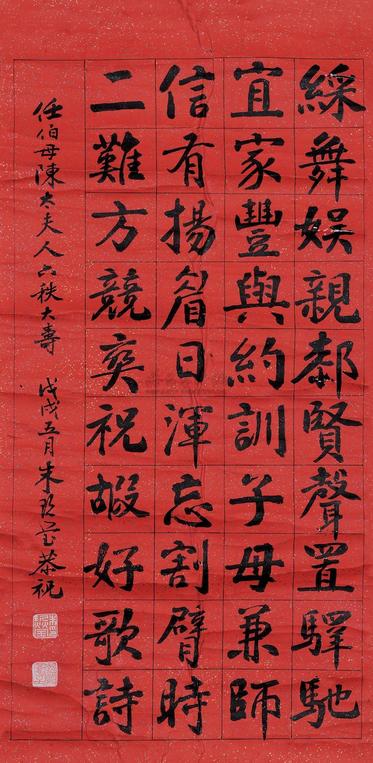 綵舞娛親鄰賢聲置驛馳
宜家豐與約訓子母兼師
信有揚眉日渾忘割臂時
二難方競爽祝嘏好歌詩
任伯母陳太夫人六秩大壽 戊戌五月朱玖瑩恭祝